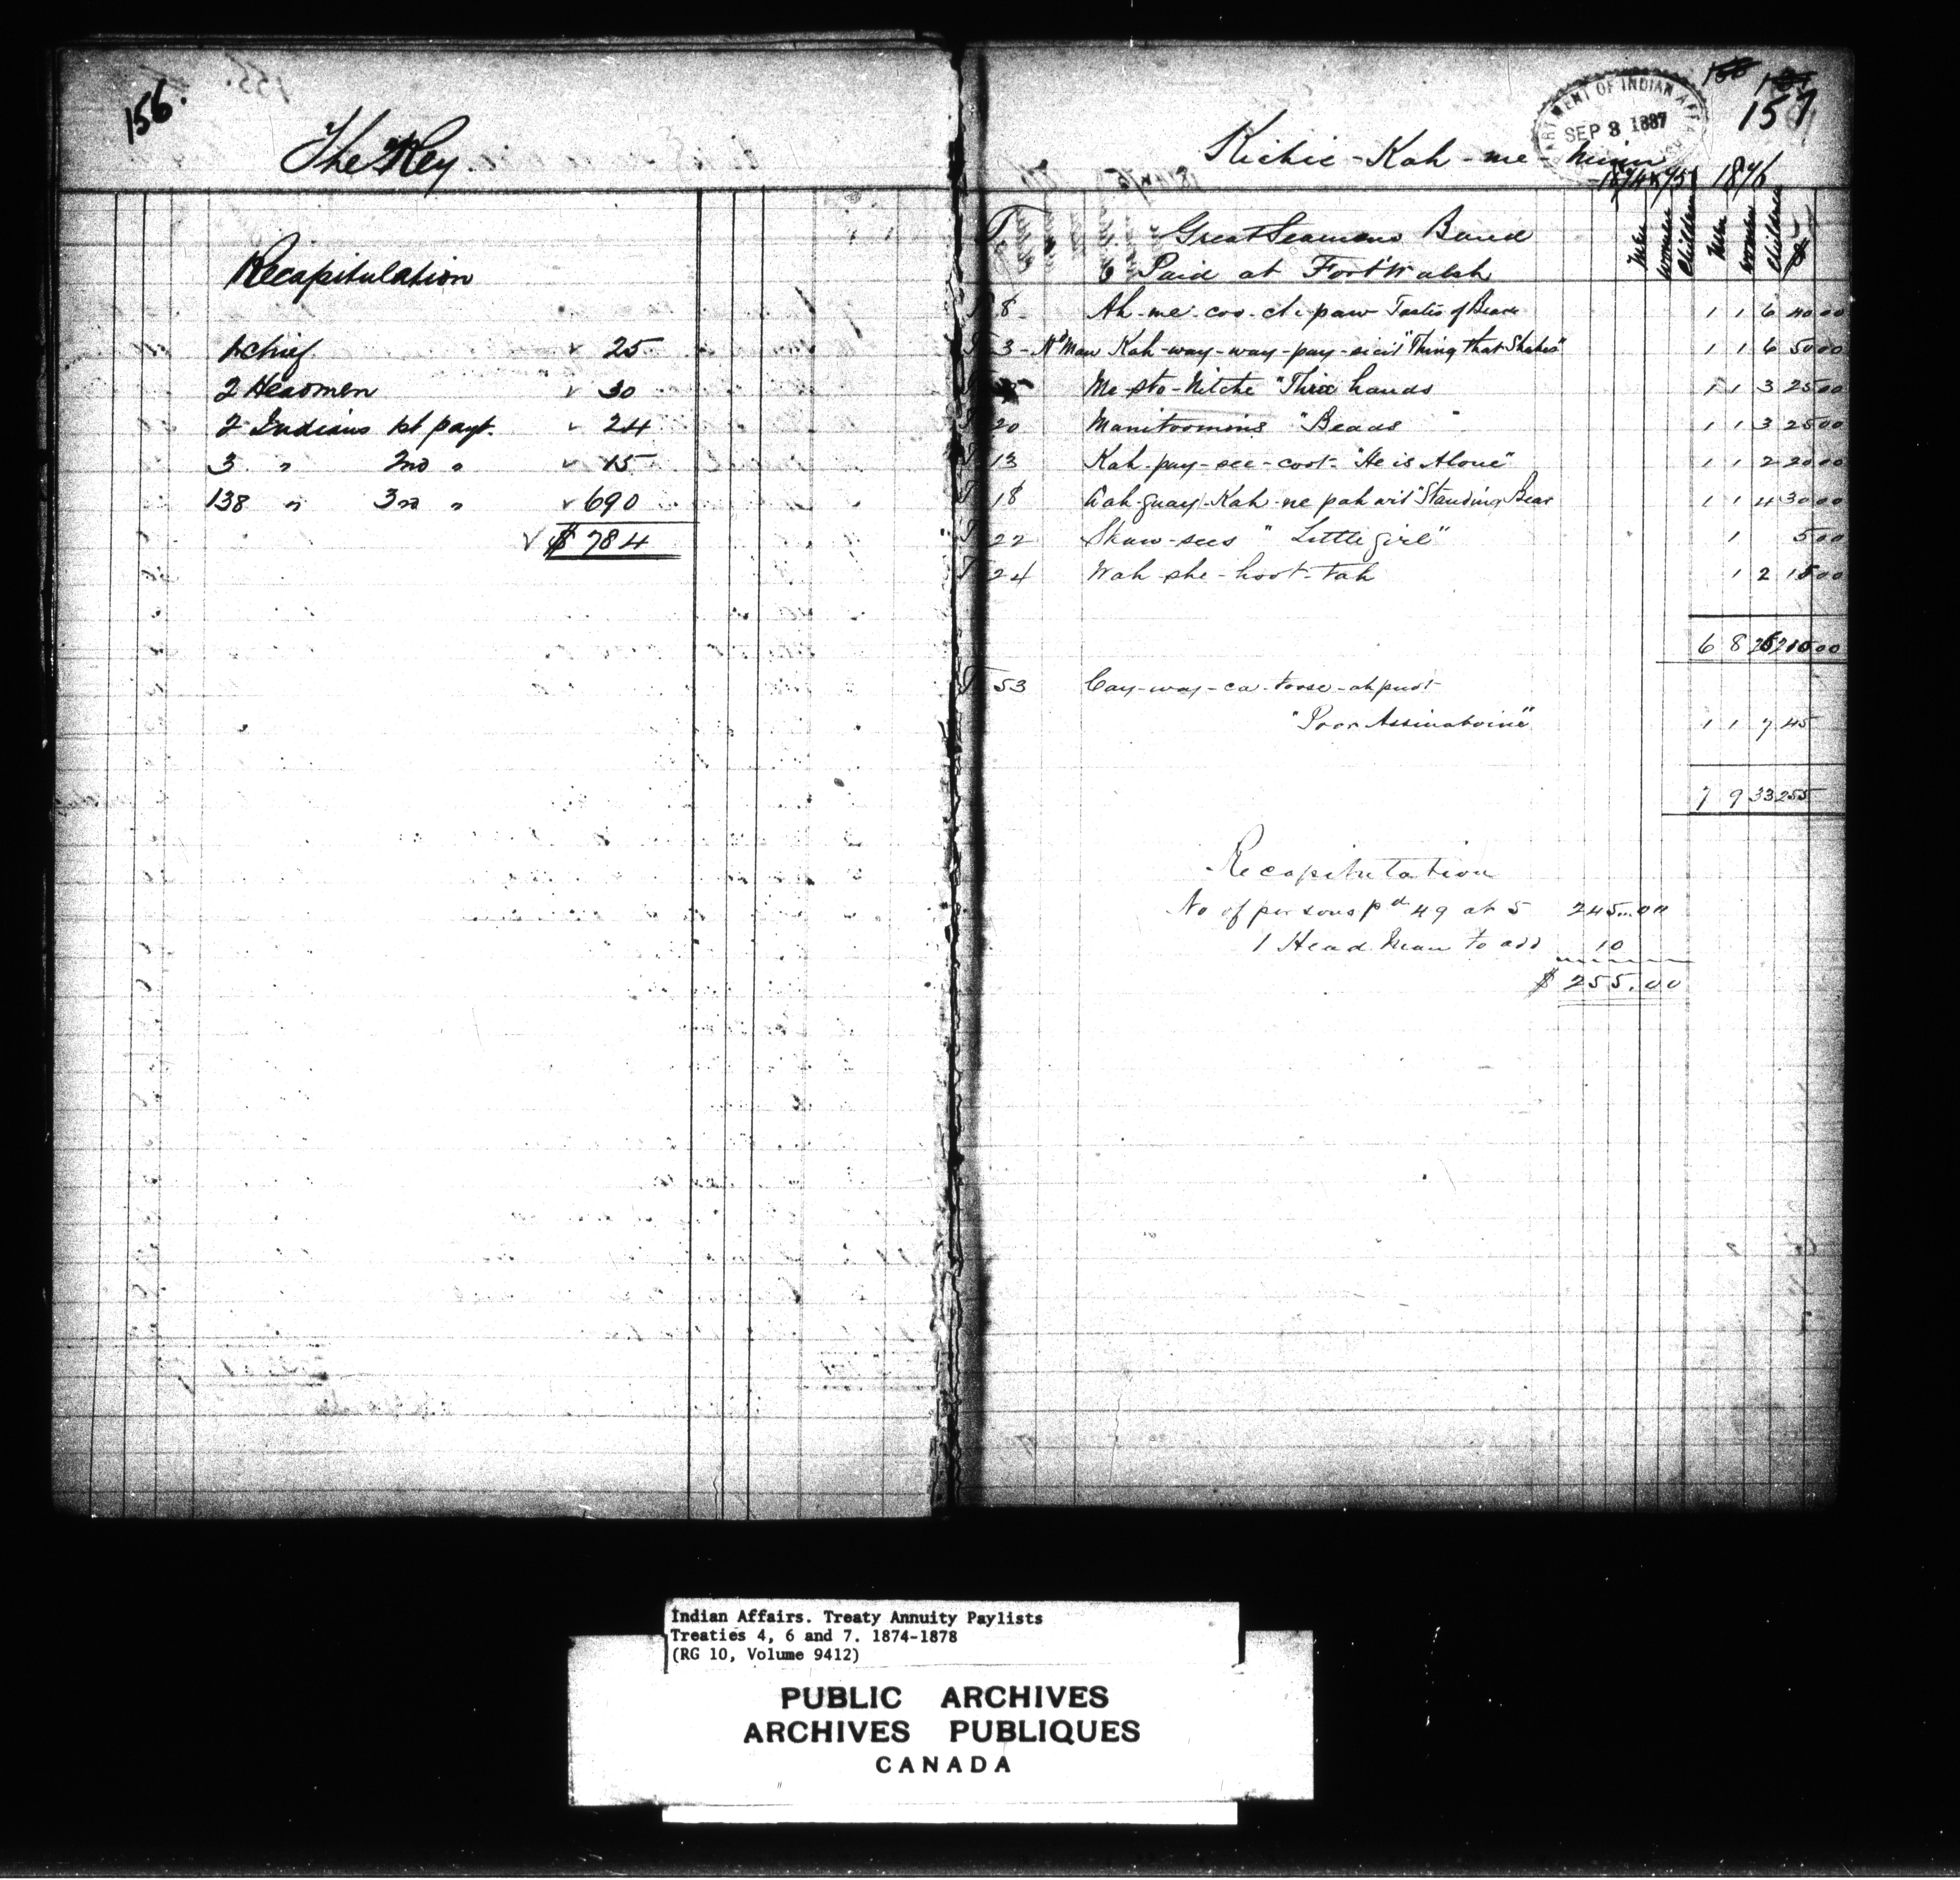 156.
The Key.
Recapitulation
1 chief 25
2 Headmen 30
2 Indians 1st payt. 24
3 " 2nd " 15
138 " 3rd " 690
$ 784
157
DEPARTMENT OF INDIAN AFFAIRS
SEP 3 1887
Kichie - Kah - me - Ninin
1874 & 75 1876
Men Women Children Men Women Children $
Great Seamans Band
Paid at Fort Walsh
T 8 Ah-me-coo-che-paw Tastes of Bears 1 1 6 40 00
T 3 - Hd Man Kah-way-way-pay-sicit "Thing that Shakes" 1 1 6 50 00
Me-sto-Nitche "Three hands 1 1 3 25 00
T 20 Manitoomins "Beads" 1 1 3 25 00
T 13 Kah-pay-see-coot- "He is Alone" 1 1 2 20 00
T 18 Cah-guay-Kah-ne pah wit "Standing Bear 1 1 4 30 00
T 22 Shaw-sees "Little girl" 1 5 00
T 24 Wah-she-hoot-tah 1 2 15 00
6 8 26 210 00
T 53 Cay-way-ca-toose-ah puot-
"Poor Assinaboine" 1 1 7 45
7 9 33 255
Recapitulation
No of persons pd 49 at 5 245.00
1 Head Man to add 10
$ 255.00
Indian Affairs. Treaty Annuity Paylists
Treaties 4, 6 and 7. 1874-1878
(RG 10, Volume 9412)
PUBLIC ARCHIVES
ARCHIVES PUBLIQUES
CANADA